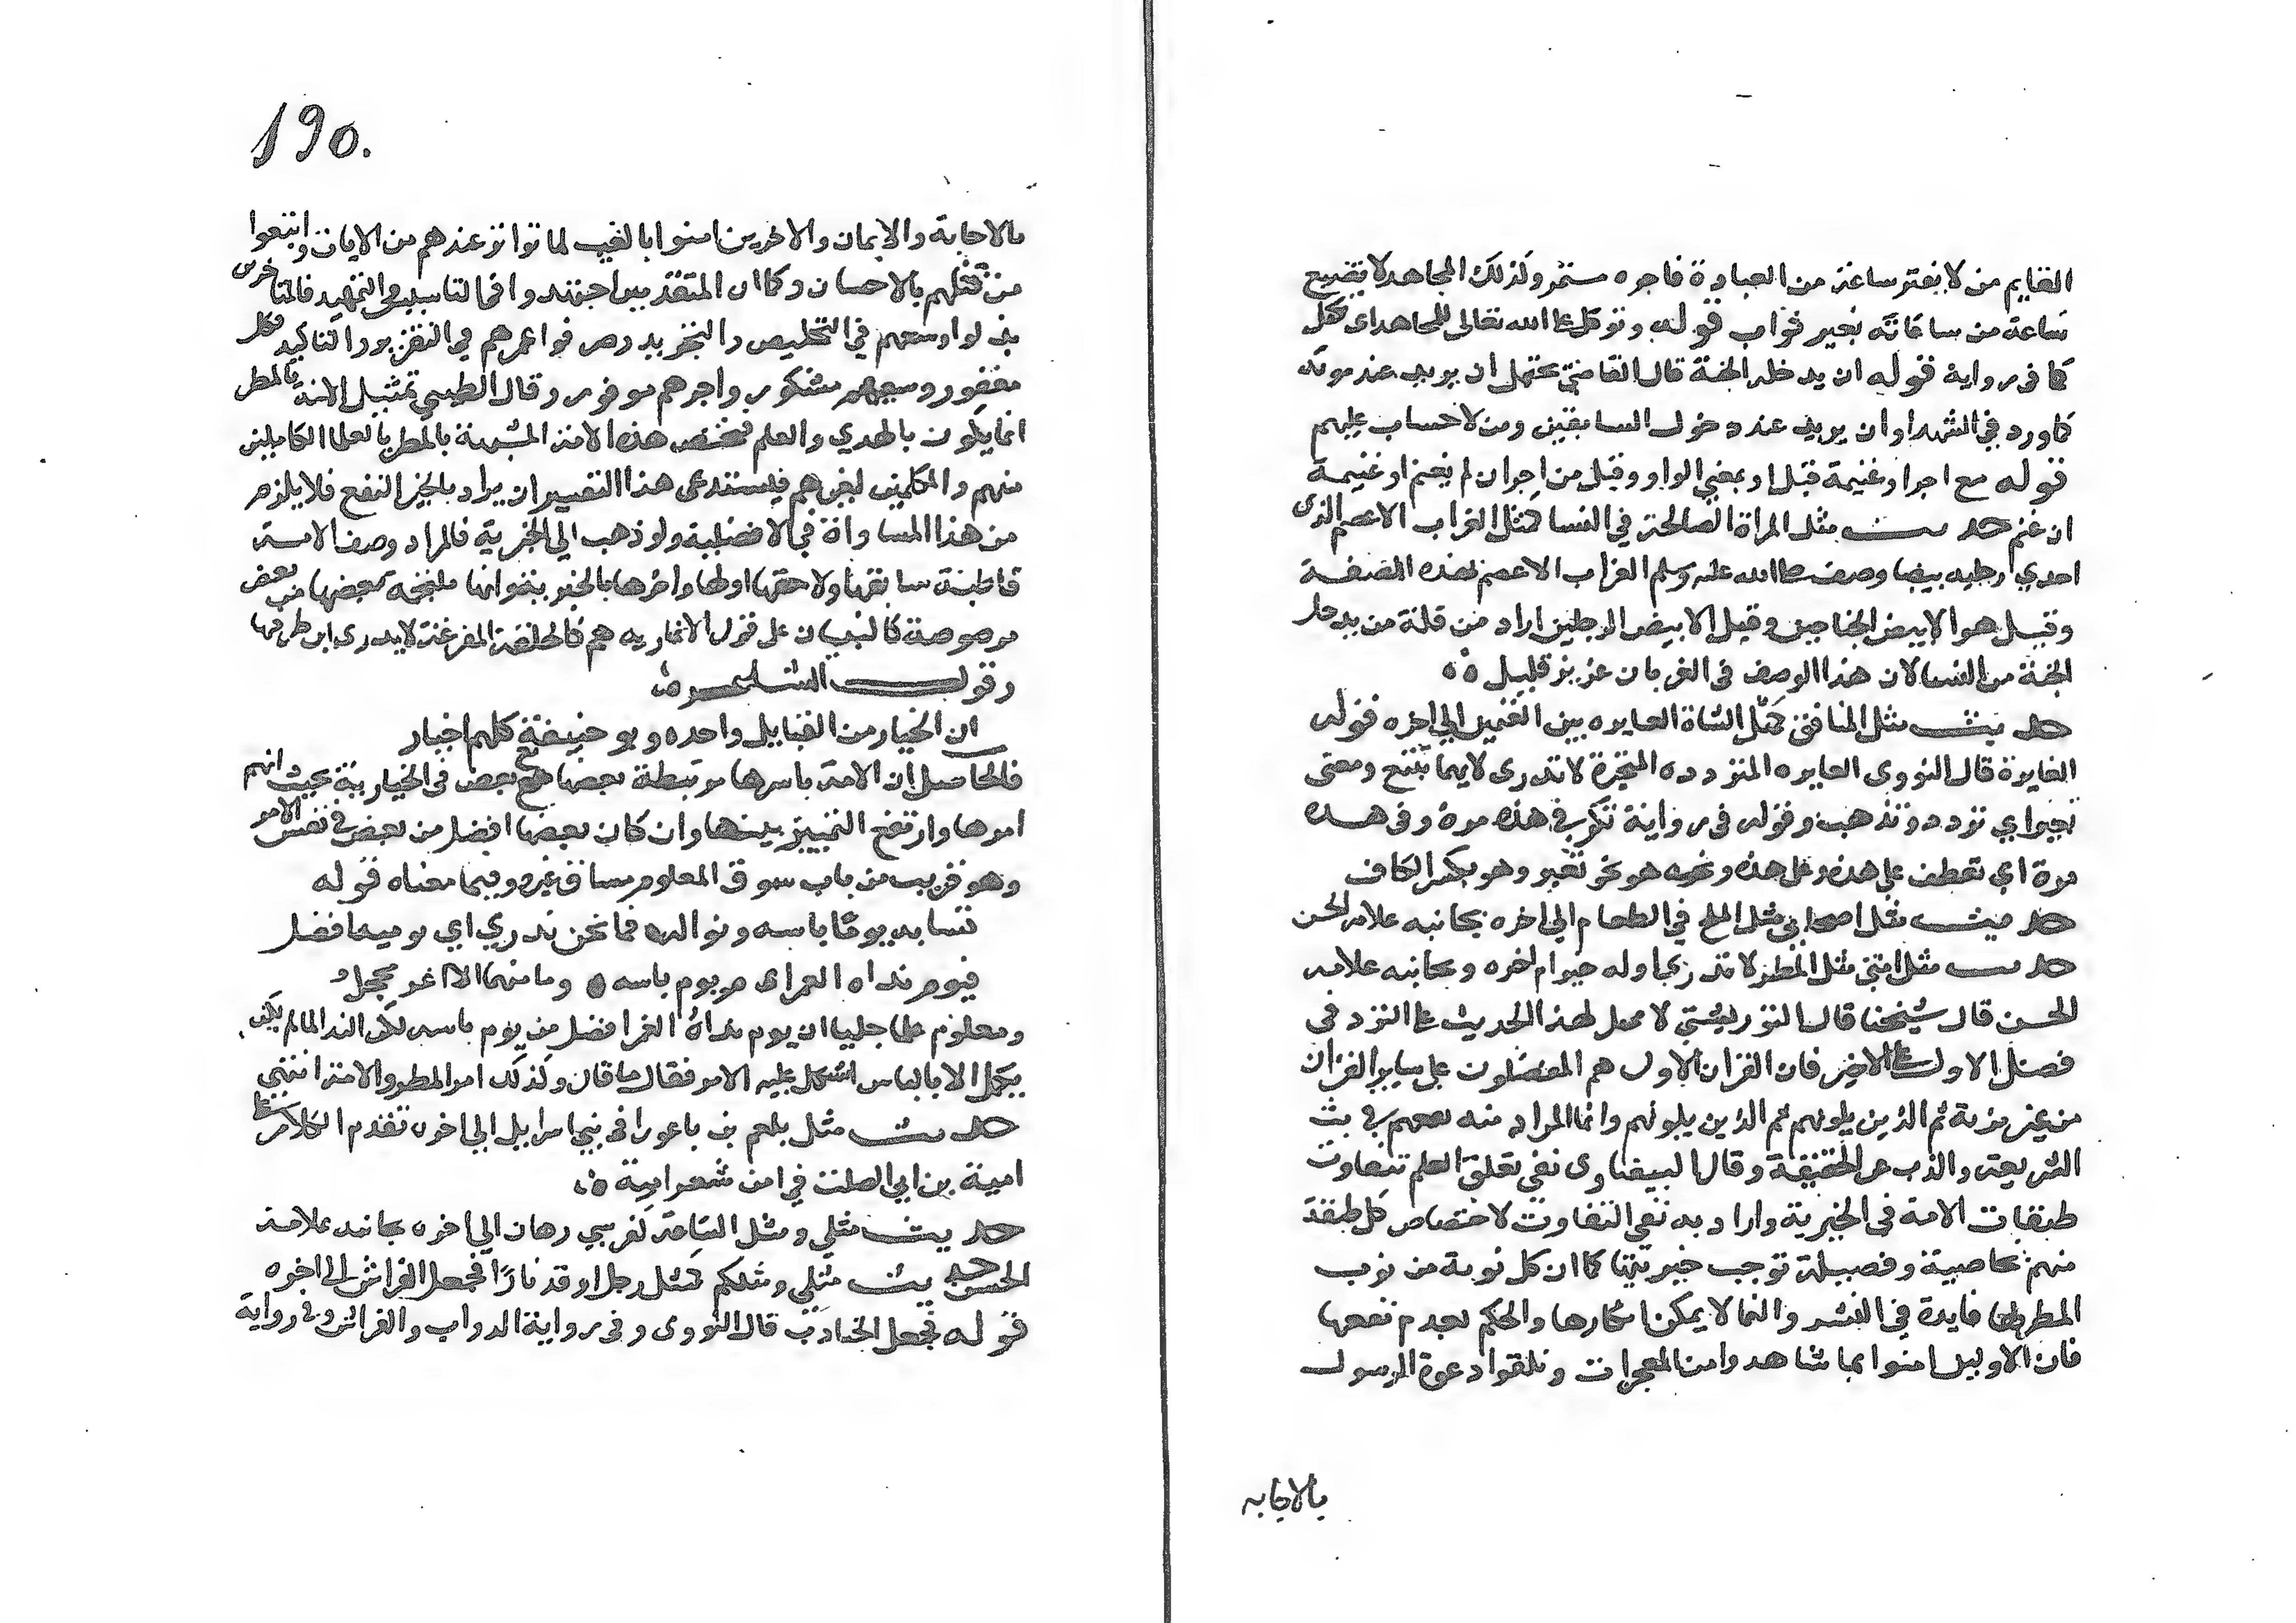 القايم من لا يفتر ساعة من العبادة فاجره مستمر وكذلك المجاهد لا تضيع
ساعة من ساعاته بغير ثواب قوله وتوكل الله تعالى للمجاهد اى تكفل
كما فى رواية قوله ان يدخله الجنة قال القاضي يحتمل ان يريد عند موته
كما ورد في الشهدا وان يريد عند دخول السابقين ومن لا حساب عليهم
قوله مع اجر او غنيمة قيل او بمعني الواو وقيل من اجر ان لم يغنم او غنيمة
ان غنم حديث مثل المراة الصالحة في النسا كمثل الغراب الاعصم الذى
احدي رجليه بيضا وصف صلى الله عليه وسلم الغراب الاعصم بهذه الصفة
وقيل هو الابيض الجناحين وقيل الابيض الرجلين اراد من قلة من يدخل
الجنة من النسا لان هذا الوصف فى الغربان عزيز قليل ه ه
حديث مثل المنافق كمثل الشاة العايره بين الغنمين الي اخره قوله
العايرة قال النووى العايره المتردده المتحيرة لا تدرى لايهما تتبع ومعنى
تعير اي تردد وتذهب وقوله فى رواية تكر في هذه مرة وفى هذه
مرة اي تعطف على هذه وعلى هذه ونحوه هو نحو تعير وهو بكسر الكاف
حديث مثل اصحابي مثل الملح في الطعام الي اخره بجانبه علامة الحسن
حديث مثل امتي مثل المطر لا تدري اوله خير ام اخره وبجانبه علامة
الحسن قال شيخنا قال التوربشتي لا محمل لهذا الحديث على التردد في
فضل الاول على الاخر فان القرن الاول هم المفضلون على ساير القرون
من غير مرية ثم الذين يلونهم ثم الذين يلونهم وانما المراد منه نفعهم في بث
الشريعة والذب عن الحقيقة وقال البيضاوى نفى تعلق العلم بتفاوت
طبقات الامة فى الخيرية واراد به نفي التفاوت لاختصاص كل طبقة
منهم بخاصية وفضيلة توجب خيريتها كما ان كل نوبة من نوب
المطر لها فايدة في النشر والنما لا يمكن انكارها والحكم بعدم نفعها
فان الاولين امنوا بما شاهدوا من المعجزات وتلقوا دعوة الرسول
بالاجابه
190.
بالاجابة والايمان والاخرين امنوا بالغيب لما تواتر عندهم من الايات واتبعوا
من قبلهم بالاحسان وكما ان المتقدمين اجتهدوا في التاسيس والتمهيد فالمتاخرين
بذلوا وسعهم في التلخيص والتجريد وصرفوا عمرهم في التقرير والتاكيد فكل
مغفور وسعيهم مشكور واجرهم موفور وقال الطيبي تمثيل الامة بالمطر
انما يكون بالهدي والعلم فتختص هذه الامة المشبهة بالمطر بالعلما الكاملين
منهم والمكملين لغيرهم فيستدعى هذا التفسير ان يراد بالخير النفع فلا يلزم
من هذا المساواة في الافضلية ولو ذهب الي الخيرية فالمراد وصف الامة
قاطبة سابقها ولاحقها اولها واخرها بالخير بعضها من بعض
مرصوصة كالبنيان على قول الانمارية هم كالحلقة المفرغة لا يدرى اين طرفها
وقول الشاعر
ان الخيار من القبايل واحده وبنو حنيفة كلهم اخيار
فالحاصل ان الامة باسرها مرتبطة بعضها مع بعض فى الخيارية بحيث انهم
امرها وارتفع التمييز بينها وان كان بعضها افضل من بعض في نفس الامر
وهو قريب من باب سوق المعلوم مساق غيره وفي معناه قوله
تشابه يوماه باسه ونواله فما نحن ندري اي يوميه افضل
فيوم نداه الغمر ام يوم باسه ه وما منهما الا اغر محجل
ومعلوم علما جليا ان يوم نداه الغمر افضل من يوم باسه لكن الندا لما لم يكن
يكمل الا بالباس اشكل عليه الامر فقال ما قال وكذلك امر المطر والامة انتهي
حديث مثل بلعم بن باعورا فى بني اسرايل الي اخره تقدم الكلام على
امية بن ابي الصلت في امن شعر امية ه
حديث مثلي ومثل الساعة كفرسي رهان الي اخره بجانبه علامة
الحسن حديث مثلي ومثلكم كمثل رجل اوقد نارًا فجعل الفراش الى اخره
قوله فجعل الجنادب قال النووى وفى رواية الدواب والفراش وفى رواية